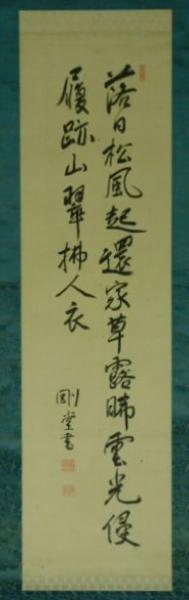 落日松風起還家草露晞雲光侵
履跡山翠拂人衣
剛堂書